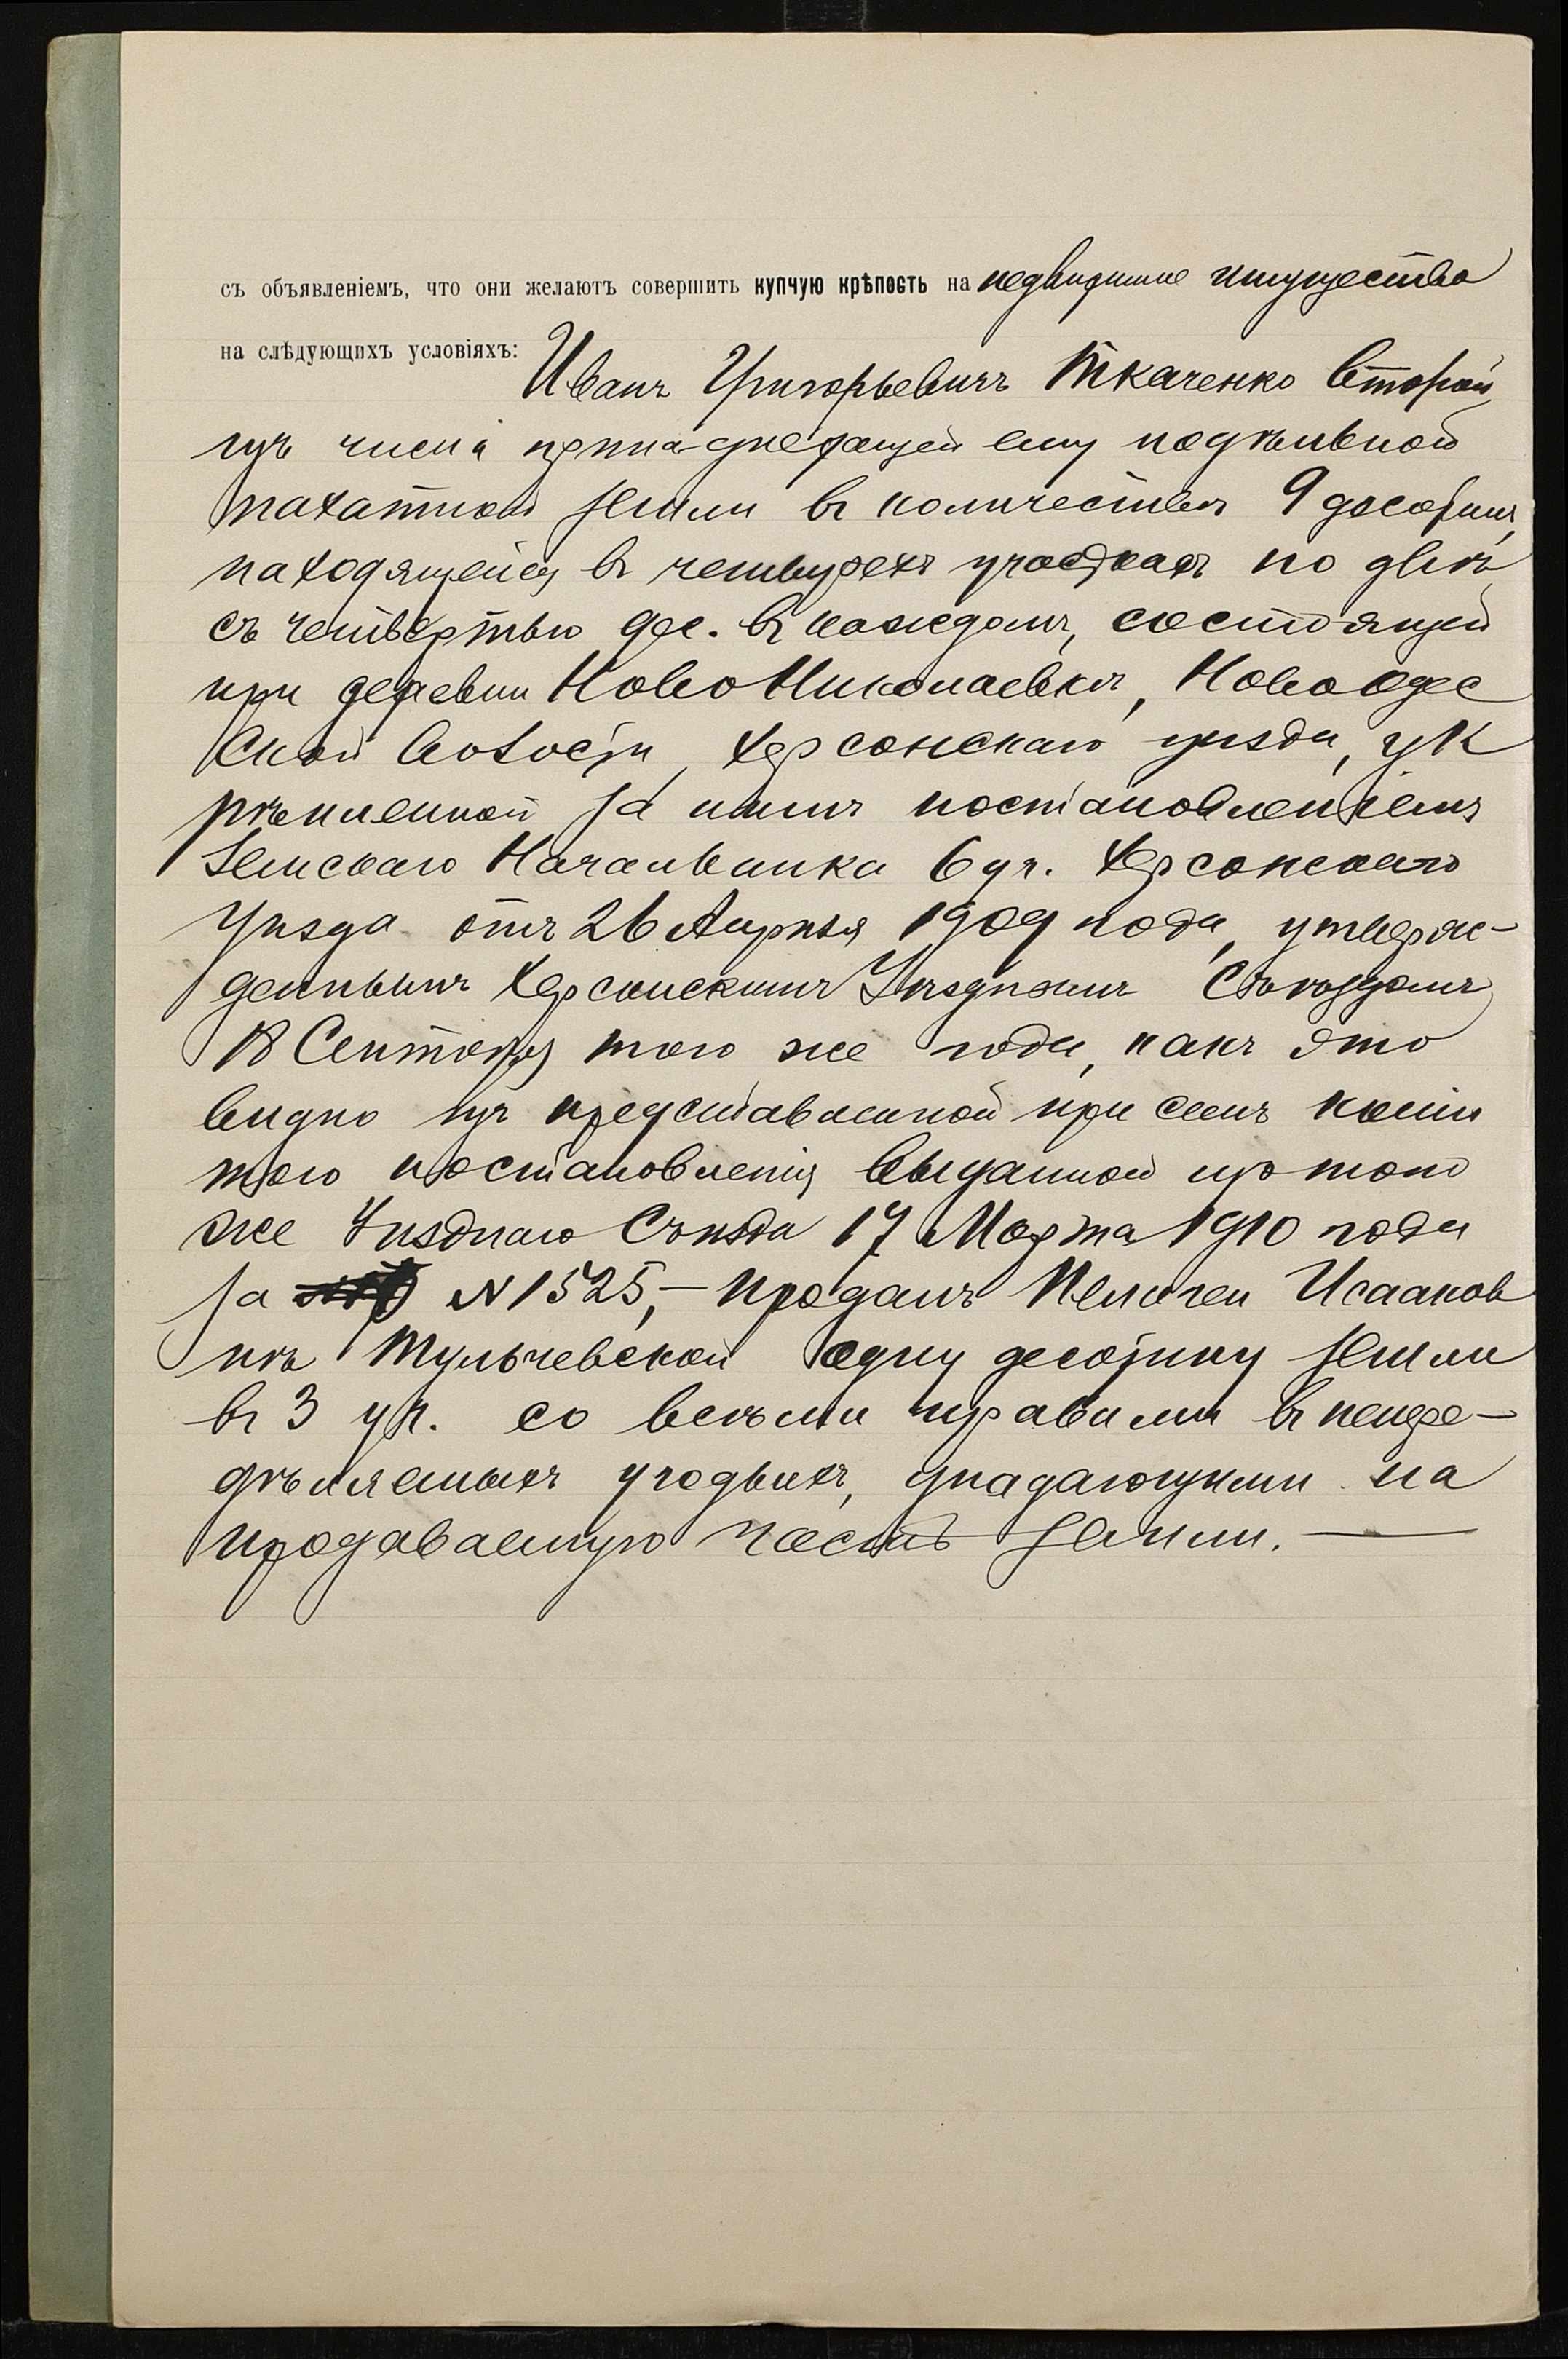 съ объявленіемъ, что они желаютъ совершить купчую крѣпость на недвижимое имущество
на слѣдующихъ условіяхъ:
Иванъ Григорьевичъ Ткаченко Второй
изъ числа принадлежащей ему надѣльной
пахатной земли въ количествѣ 9 десятинъ,
находящейся въ четырехъ участкахъ по двѣ
съ четвертью дес. въ каждомъ, состоящей
при деревни НовоНиколаевкѣ, Новоодес
ской волости, Херсонскаго уѣзда, ук
рѣпленной за нимъ постановленіемъ
Земскаго Начальника 6 уч. Херсонскаго
Уѣзда отъ 26 Апрѣля 1909 года, утверж-
деннымъ Херсонскимъ Уѣзднымъ Съѣздомъ
18 Сентября того же года, какъ это
видно изъ представленной при семъ копіи
того постановленія выданной изъ того
же Уѣзднаго Съѣзда 17 Марта 1910 года
за N 1525,— продалъ Исааков
нѣ Тульчевской одну десятину земли
въ 3 уч. со всѣми правами въ непре-
дѣляемыхъ угодьяхъ, упадающими на
продаваемую часть земли. —